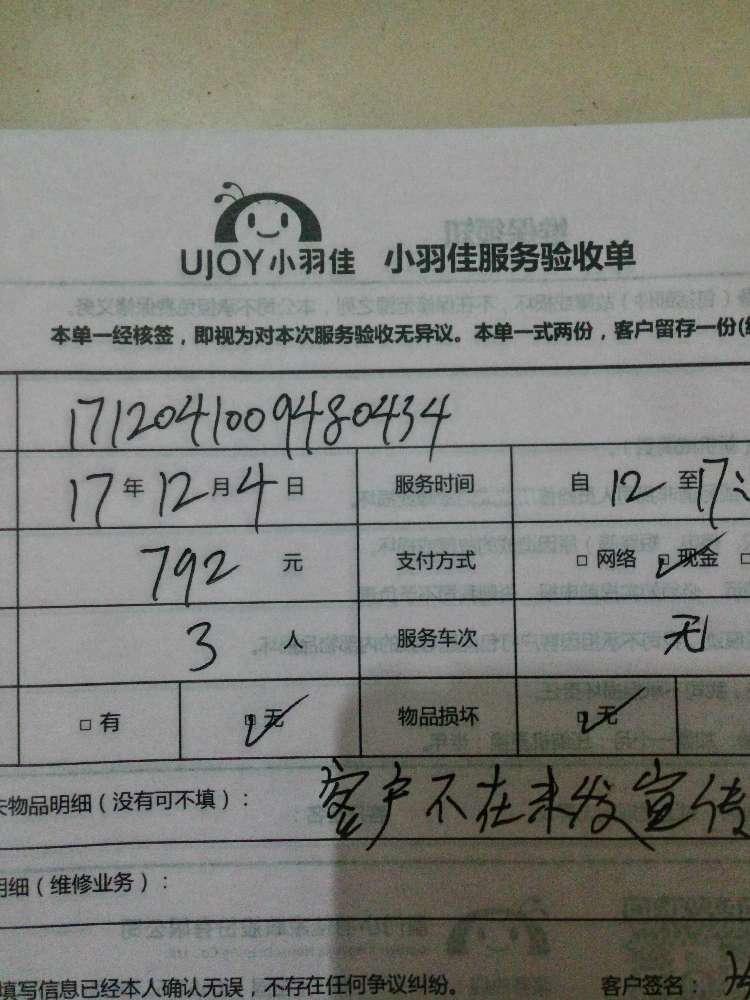 UJOY小羽佳 小羽佳服务验收单
本单一经核签，即视为对本次服务验收无异议。本单一式两份，客户留存一份
1712041009480434
17年12月4日 服务时间 自12至17
792元 支付方式 □网络 ☑现金
3人 服务车次 无
□有 ☑无 物品损坏 ☑无
物品明细（没有可不填）： 客户不在未发宣传
明细（维修业务）：
填写信息已经本人确认无误，不存在任何争议纠纷。 客户签名：